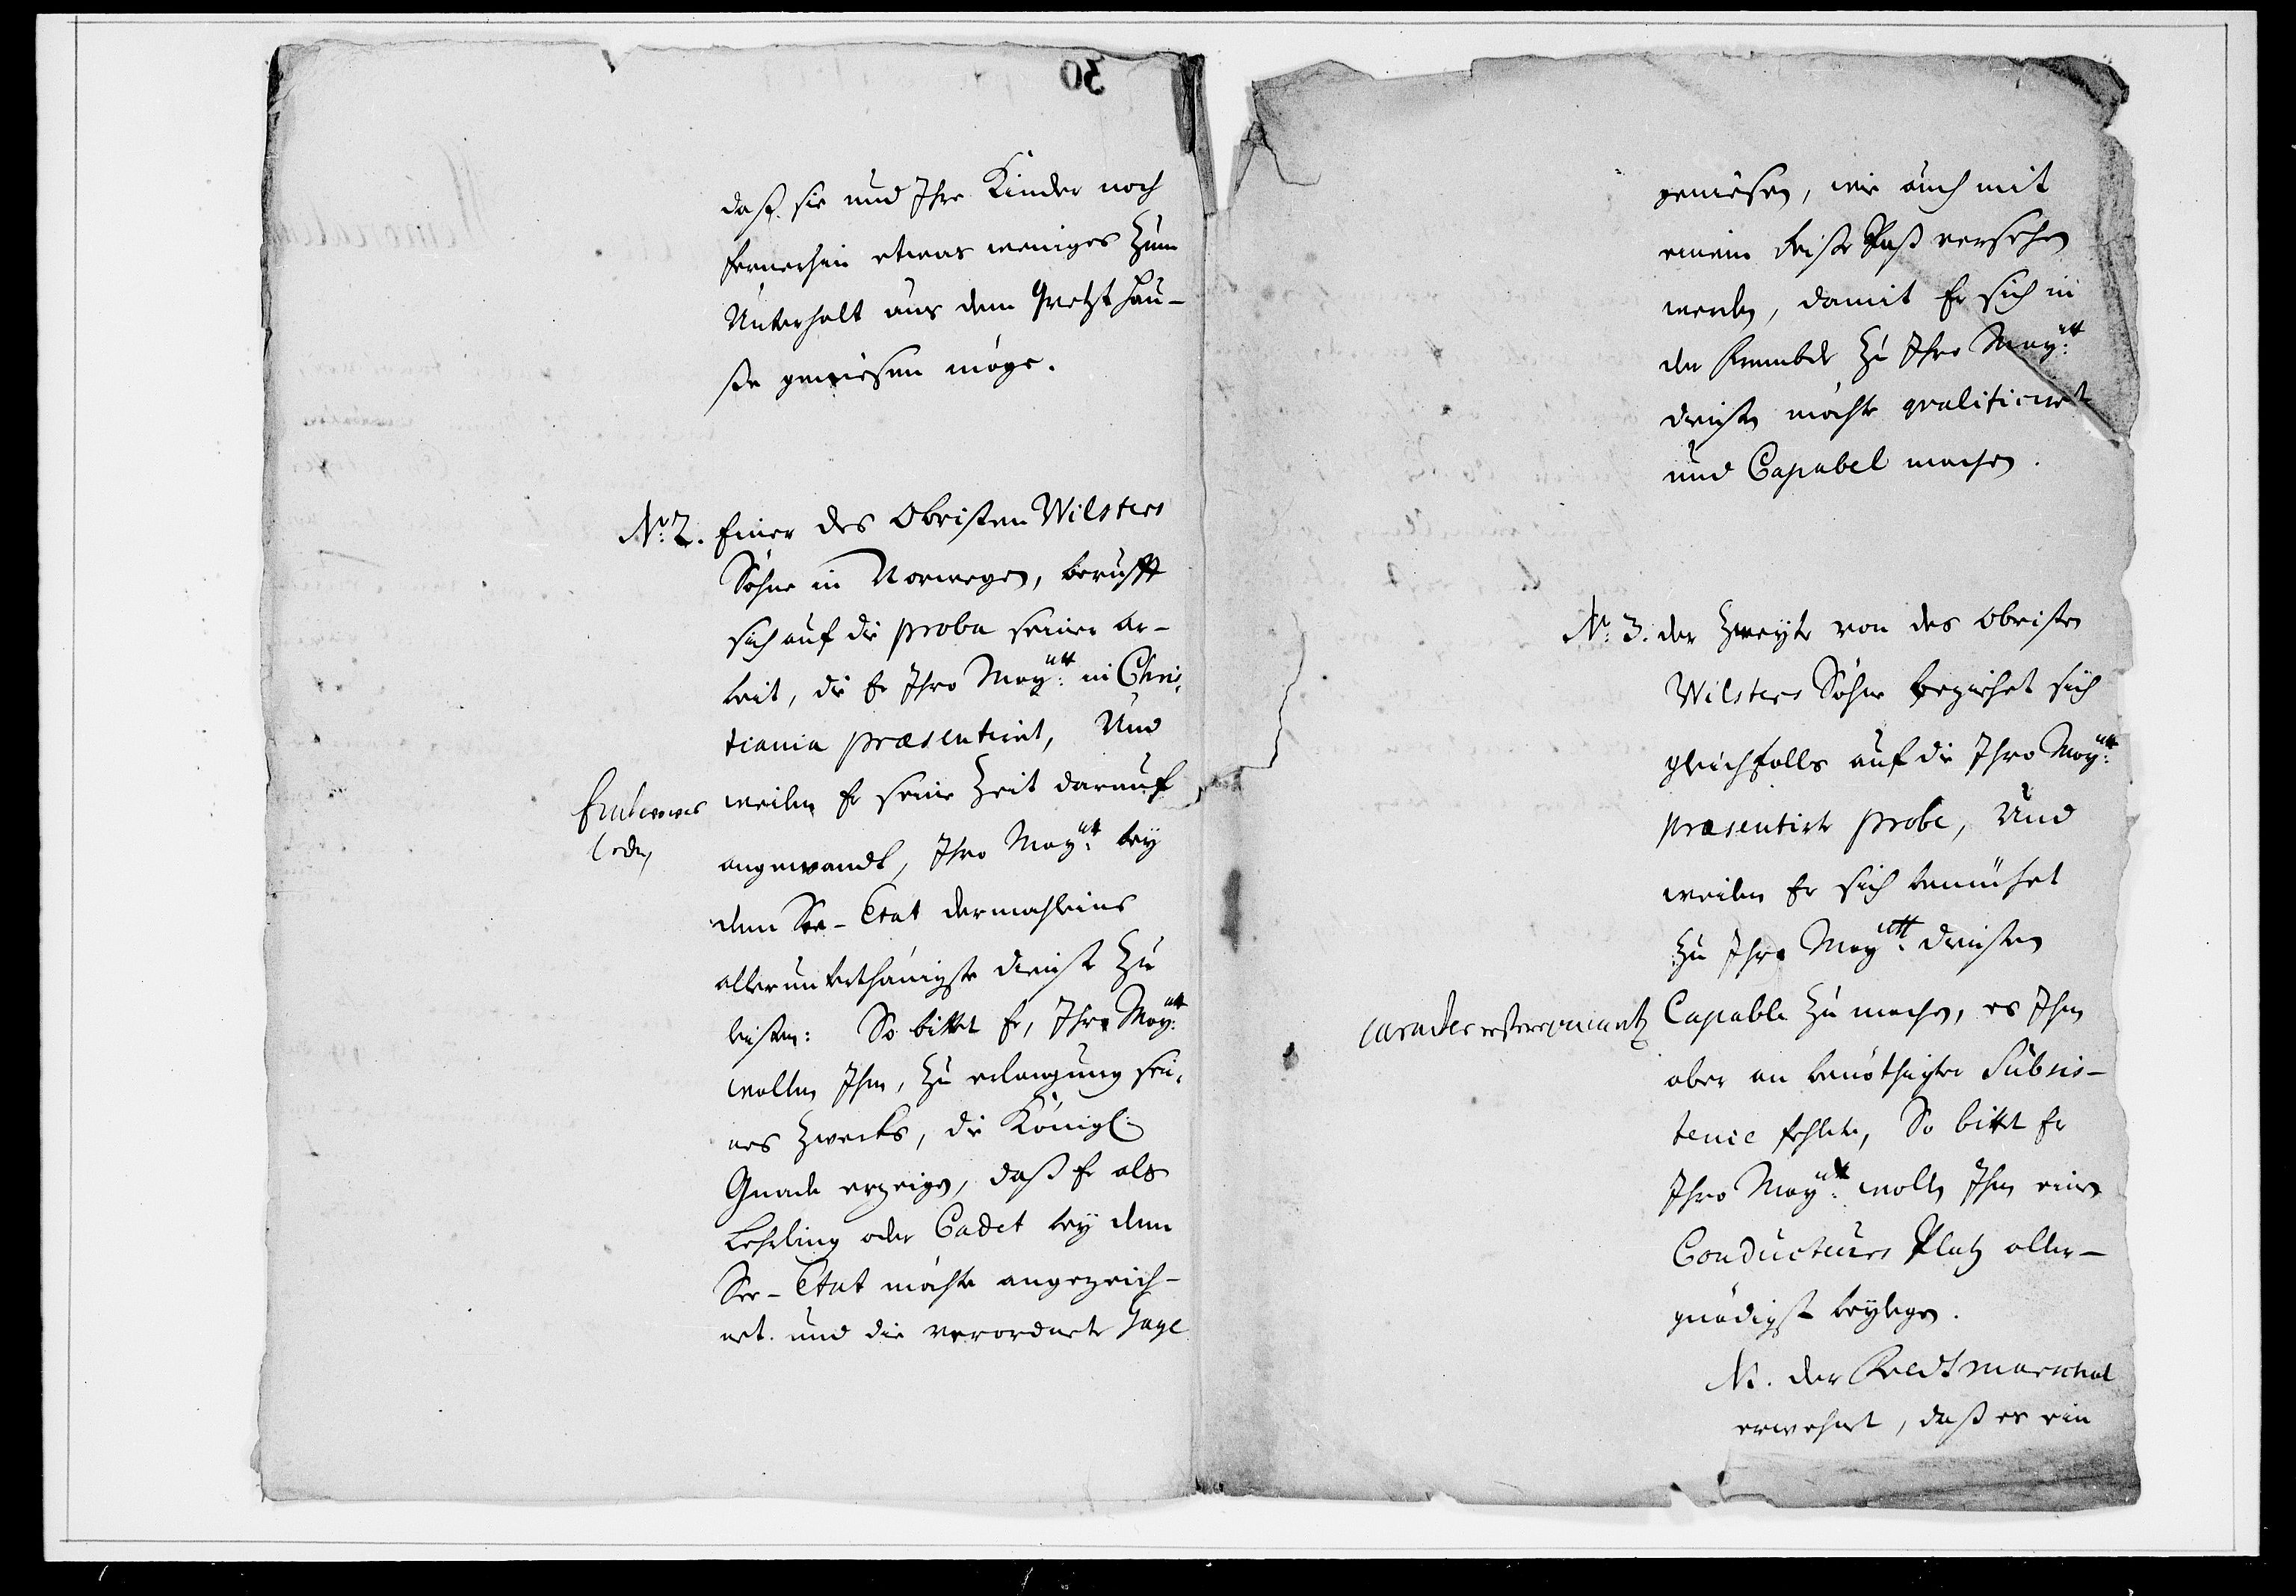 daß sie und Ihre Kinder noch
fernerhin etwas weniges zum
Unterhalt aus dem Qvetzthau-
ße geniesen möge.
No: 2. Einer des Obristen Wilsters
Söhne in Norwegen, berufft
sich auf die proba seiner ar-
beit, die Er Ihro Maytt: in Chris-
tiania præsentiret, Und
weilen Er seine Zeit darauf
angewandt, Ihro Maytt: bey
dem See-Etat dermahleins
allerunterthänigste dienste zu
leisten: So bittet Er, Ihro Maytt:
wollen Ihm, zu erlangung sei-
nes Zwecks, die Königl:
Gnade erzeigen, daß Er als
Lehrling oder Cadet bey dem
See-Etat möchte angezeich-
net und die verordnete Gage
geniesen, wie auch mit
einem Reise Paß versehen
werden, damit Er sich in
der Frembde zu Ihro Maytt:
diensten möchte qvalificiret
und Capabel machen.
No: 3. der Zweyte von des Obristen
Wilsters Söhne beziehet sich
gleichfalls auf die Ihro Maytt:
præsentirte probe, Und
weilen Er sich bemühet
zu Ihro Maytt: diensten
Capable zu machen, es Ihm
aber an benöthigter Subsis-
tence fehlete, So bittet Er
Ihro Maytt: wollen Ihm eines
Conducteurs Platz aller-
gnädigst beylegen.
der Feldtmarschal
erwehnet, daß er ein